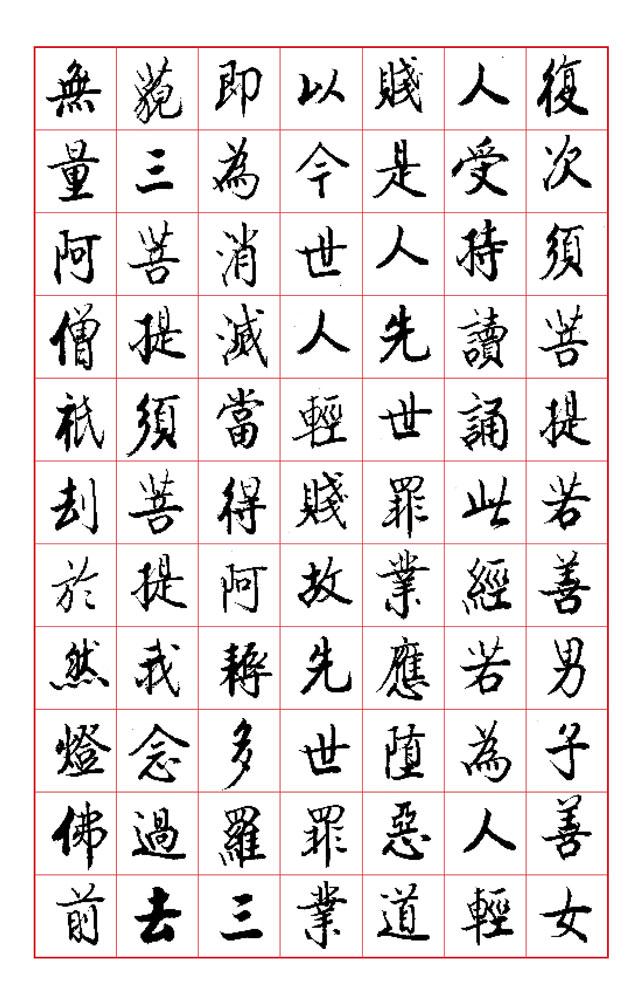 復次須菩提若善男子善女
人受持讀誦此經若為人輕
賤是人先世罪業應堕惡道
以今世人輕賤故先世罪業
即為消滅當得阿耨多羅三
藐三菩提須菩提我念過去
無量阿僧祇刦於然燈佛前